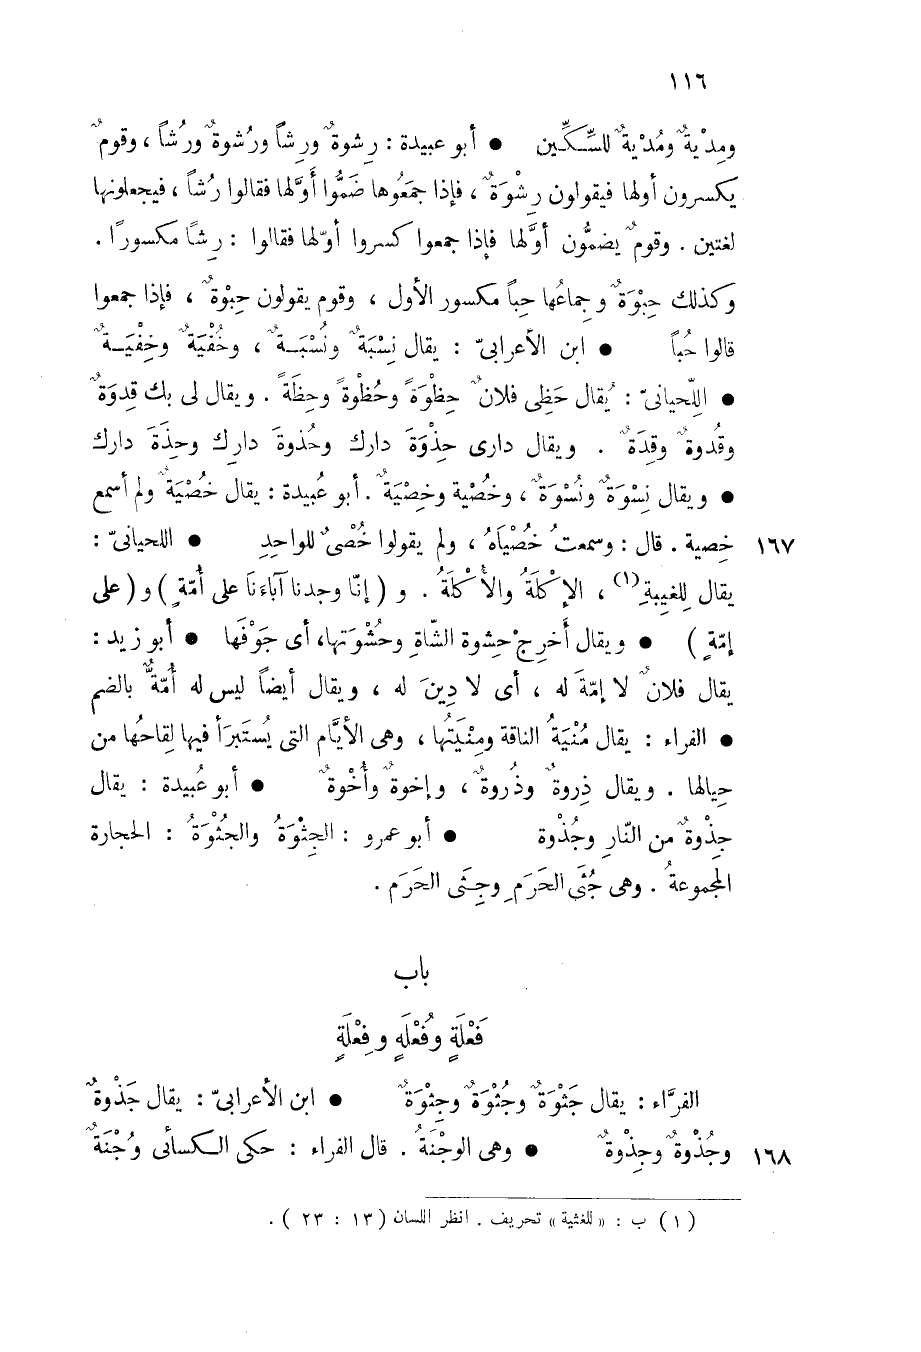 ١١٦
ومِدْيةٌ ومُدْيةٌ للسِّكِّين ● أبو عبيدة : رِشوةٌ ورِشاً ورُشوةٌ ورُشاً ، وقومٌ
يكسرون أولها فيقولون رِشْوَةٌ ، فإذا جمَعُوها ضَمُّوا أَوَّلها فقالوا رُشاً ، فيجعلونها
لغتين . وقومٌ يضمُّون أوَّلها فإِذا جمعوا كسروا أوّلها فقالوا : رِشاً مكسورًا .
وكذلك حِبْوَةٌ وجِماعُها حِباً مكسور الأول ، وقوم يقولون حِبْوةٌ ، فإذا جمعوا
قالوا حُباً ● ابن الأعرابىّ : يقال نِسْبَةٌ ونُسْبَةٌ ، وخُفْيَةٌ وخِفْيَةٌ
● اللِّحيانىّ : يُقال حَظِى فلانٌ حِظْوَةً وحُظْوةً وحِظَةً . ويقال لى بك قِدوَةٌ
وقُدوةٌ وقِدَةٌ . ويقال دارى حِذْوَةَ دارك وحُذوةَ دارِك وحِذَةَ دارك
● ويقال نِسْوَةٌ ونُسْوَةٌ ، وخُصْية وخِصْيَةٌ . أبو عُبيدة : يقال خُصْيَةٌ ولم أسمع
١٦٧ خِصية . قال : وسمعتُ خُصْيَاهُ ، ولم يقولوا خُصْىٌ للواحِدِ ● اللحيانىّ :
يقال لِلغيبةِ (١) ، الإِكْلَةُ والأُكْلَةُ . و ( إنّا وجدنا آباءَنَا على أُمّةٍ ) و ( على
إمّةٍ ) ● ويقال أَخرِجْ حِشوة الشّاةِ وحُشْوَتها، أى جَوْفَها ● أبو زيد :
يقال فلانٌ لا إمّةَ له ، أى لا دِينَ له ، ويقال أيضاً ليس له أُمّةٌ بالضم
● الفراء : يقال مُنْيَةُ الناقة ومِنْيَتُها ، وهى الأيَّام التى يُستَبرَأ فيها لِقاحُها من
حِيالها . ويقال ذِروةٌ وذُروةٌ ، وإخوةٌ وأُخْوةٌ ● أبو عُبيدة : يقال
جِذْوةٌ من النَّارِ وجُذْوة ● أبو عمرو : الجِثْوَةُ والجُثْوَةُ : الحجارة
المجموعةُ . وهى جُثَى الحَرَمِ وجِثَى الحَرَم .
باب
فَعْلَةٍ وفُعْلَةٍ وفِعْلَةٍ
الفرَّاء : يقال جَثْوَةٌ وجُثْوَةٌ وجِثْوَةٌ ● ابن الأعرابىّ : يقال جَذْوةٌ
١٦٨ وجُذْوةٌ وجِذْوةٌ ● وهى الوجْنَةُ . قال الفراء : حكى الكسائى وُجْنَةٌ
(١) ب : « للغثية » تحريف . انظر اللسان ( ١٣ : ٢٣ ) .